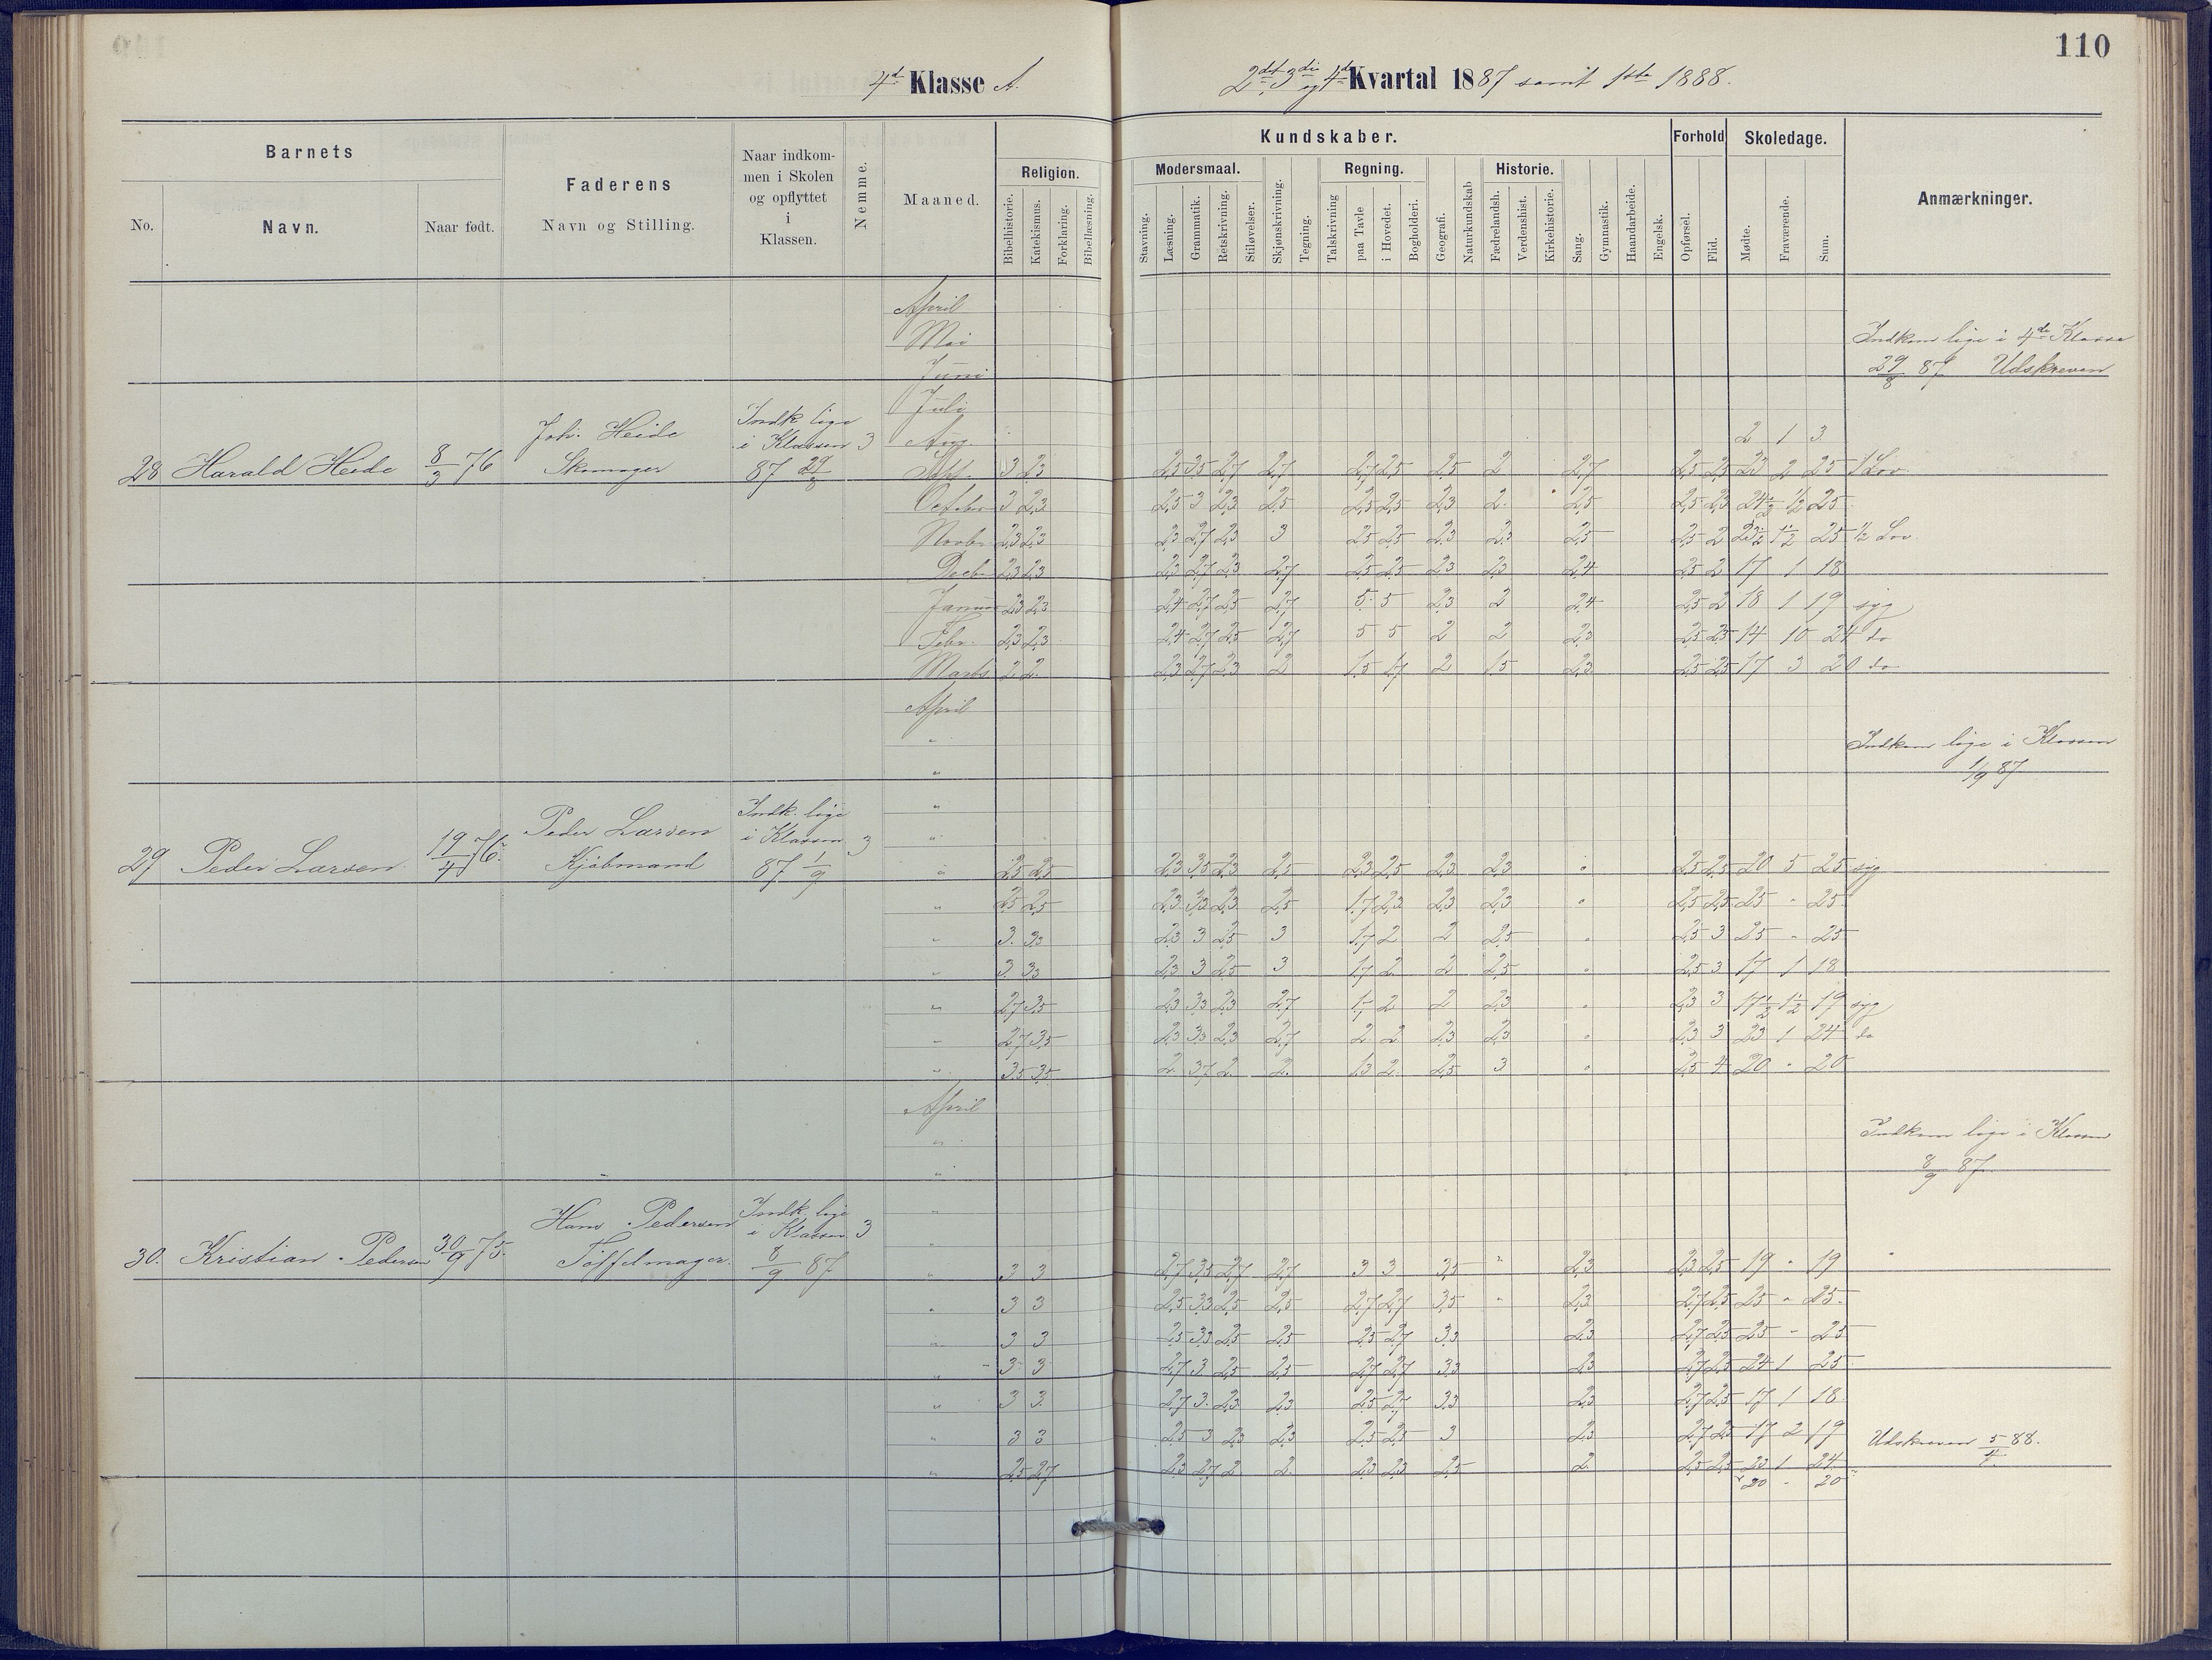 110
4de Klasse A.
2det, 3die og 4de Kvartal 1887 samt 1ste 1888.
Barnets
Faderens
Naar indkommen i Skolen og opflyttet i Klassen.
Nemme.
Maaned.
Kundskaber.
Forhold
Skoledage.
Anmærkninger.
No.
Navn.
Naar født.
Navn og Stilling.
Religion.
Modersmaal.
Regning.
Historie.
Bibelhistorie.
Katekismus.
Forklaring.
Bibellæsning.
Stavning.
Læsning.
Grammatik.
Retskrivning.
Stiløvelser.
Skjønskrivning.
Tegning.
Talskrivning
paa Tavle
i Hovedet.
Bogholderi.
Geografi.
Naturkundskab
Fædrelandsh.
Verdenshist.
Kirkehistorie.
Sang.
Gymnastik.
Haandarbeide.
Engelsk.
Opførsel.
Flid.
Mødte.
Fraværende.
Sum.
April
Mai
Juni
Indkom lige i 4de Klasse
29/8 87 Udskreven
Juli
Aug. 2 1 3
28 Harald Heide 8/3 76 Joh. Heide Skomager Indk. lige i Klassen 87 29/8 3
Sept. 3 2,3 2,5 3,5 2,7 2,7 2,7 2,5 2,5 2 2,7 2,5 2,5 23 2 25 1 Lov.
October 3 2,3 2,5 3 2,3 2,5 2,5 2,5 2,3 2 2,5 2,5 2,3 24 1/2 1/2 25
Novbr. 2,3 2,3 2,3 2,7 2,3 3 2,5 2,5 2,3 2,3 2,5 2,5 2 23 1/2 1 1/2 25 1/2 Lov.
Decb. 2,3 2,3 2,3 2,7 2,3 2,7 2,5 2,5 2,3 2,3 2,4 2,5 2 17 1 18
Januar 2,3 2,3 2,4 2,7 2,5 2,7 5 5 2,3 2 2,4 2,5 2 18 1 19 syg
Febr. 2,3 2,3 2,4 2,7 2,5 2,7 5 5 2 2 2,3 2,5 2,5 14 10 24 do
Marts 2 2 2,3 2,7 2,3 2 1,5 1,7 2 1,5 2,3 2,5 2,5 17 3 20 do
April
"
"
Indkom lige i Klassen
1/9 87
"
"
29 Peder Larsen 19/4 76. Peder Larsen Kjøbmand Indk. lige i Klassen 87 1/9 3
" 2,5 2,5 2,3 3,5 2,3 2,5 2,3 2,5 2,3 2,3 " 2,5 2,5 20 5 25 syg
" 2,5 2,5 2,3 3,3 2,3 2,5 1,7 2,3 2,3 2,3 " 2,5 2,5 25 " 25
" 3 3,3 2,3 3 2,5 3 1,7 2 2 2,5 " 2,5 3 25 " 25
" 3 3,3 2,3 3 2,5 3 1,7 2 2 2,5 " 2,5 3 17 1 18
" 2,7 3,5 2,3 3,3 2,3 2,7 1,7 2 2 2,3 " 2,3 3 17 1/2 1 1/2 19 syg
" 2,7 3,5 2,3 3,3 2,3 2,7 2 2 2,3 2,3 " 2,3 3 23 1 24 do
" 3,5 3,5 2 3,7 2 2 1,3 2 2,5 3 " 2,5 4 20 " 20
April
"
"
Indkom lige i Klassen
8/9 87.
"
30. Kristian Pedersen 30/9 75. Hans Pedersen Tøffelmager. Indk. lige i Klassen 8/9 87 3
" 3 3 2,7 3,5 2,7 2,7 3 3 3,5 " 2,3 2,3 2,5 19 " 19
" 3 3 2,5 3,3 2,5 2,5 2,7 2,7 3,5 " 2,3 2,7 2,5 25 " 25
" 3 3 2,5 3,3 2,5 2,5 2,5 2,7 3,3 2,3 2,7 2,5 25 " 25
" 3 3 2,7 3 2,5 2,5 2,7 2,7 3,3 2,3 2,7 2,5 24 1 25
" 3 3 2,7 3 2,3 2,3 2,5 2,7 3,3 2,3 2,7 2,5 17 1 18
" 3 3 2,5 3 2,3 2,3 2,5 2,5 3 2,3 2,7 2,5 17 2 19
Udskreven 5/4 88.
" 2,5 2,7 2,3 2,7 2 2 2,3 2,3 2,5 2 2,5 2,5 23 1 24
20 - 20